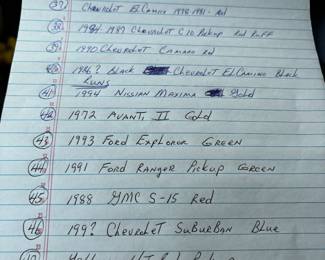 37 Chevrolet El Camino 1978-1981 Red
38 1984-1987 Chevrolet C10 Pickup Red Ruff
39 1990 Chevrolet Camaro Red
40 1986? Black Chevrolet El Camino Black
Runs
41 1994 Nissian Maxima Gold
42 1972 Avanti II Gold
43 1993 Ford Exploror Green
44 1991 Ford Ranger Pickup Green
45 1988 GMC S-15 Red
46 199? Chevrolet Suburban Blue